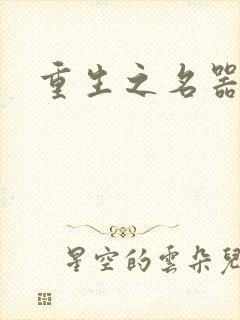 重生之名器
星空的雲朵兒